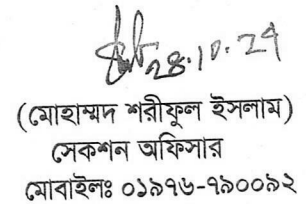 ২৪.১০.২৪
(মোহাম্মদ শরীফুল ইসলাম)
সেকশন অফিসার
মোবাইলঃ ০১৯৭৬-৭৯০০৯২